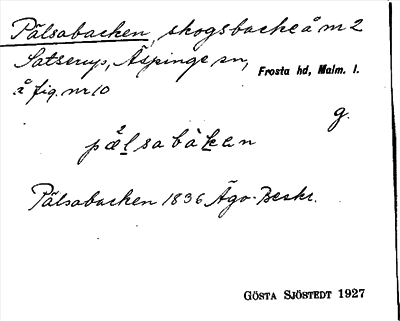 Pålsabacken, skogsbacke å m 2
Satserup, Äspinge sn,
Frosta hd, Malm. l.
å fig. nr 10
g.
pålsabàkan
Pålsabacken 1836 Ägo-Beskr.
GÖSTA SJÖSTEDT 1927